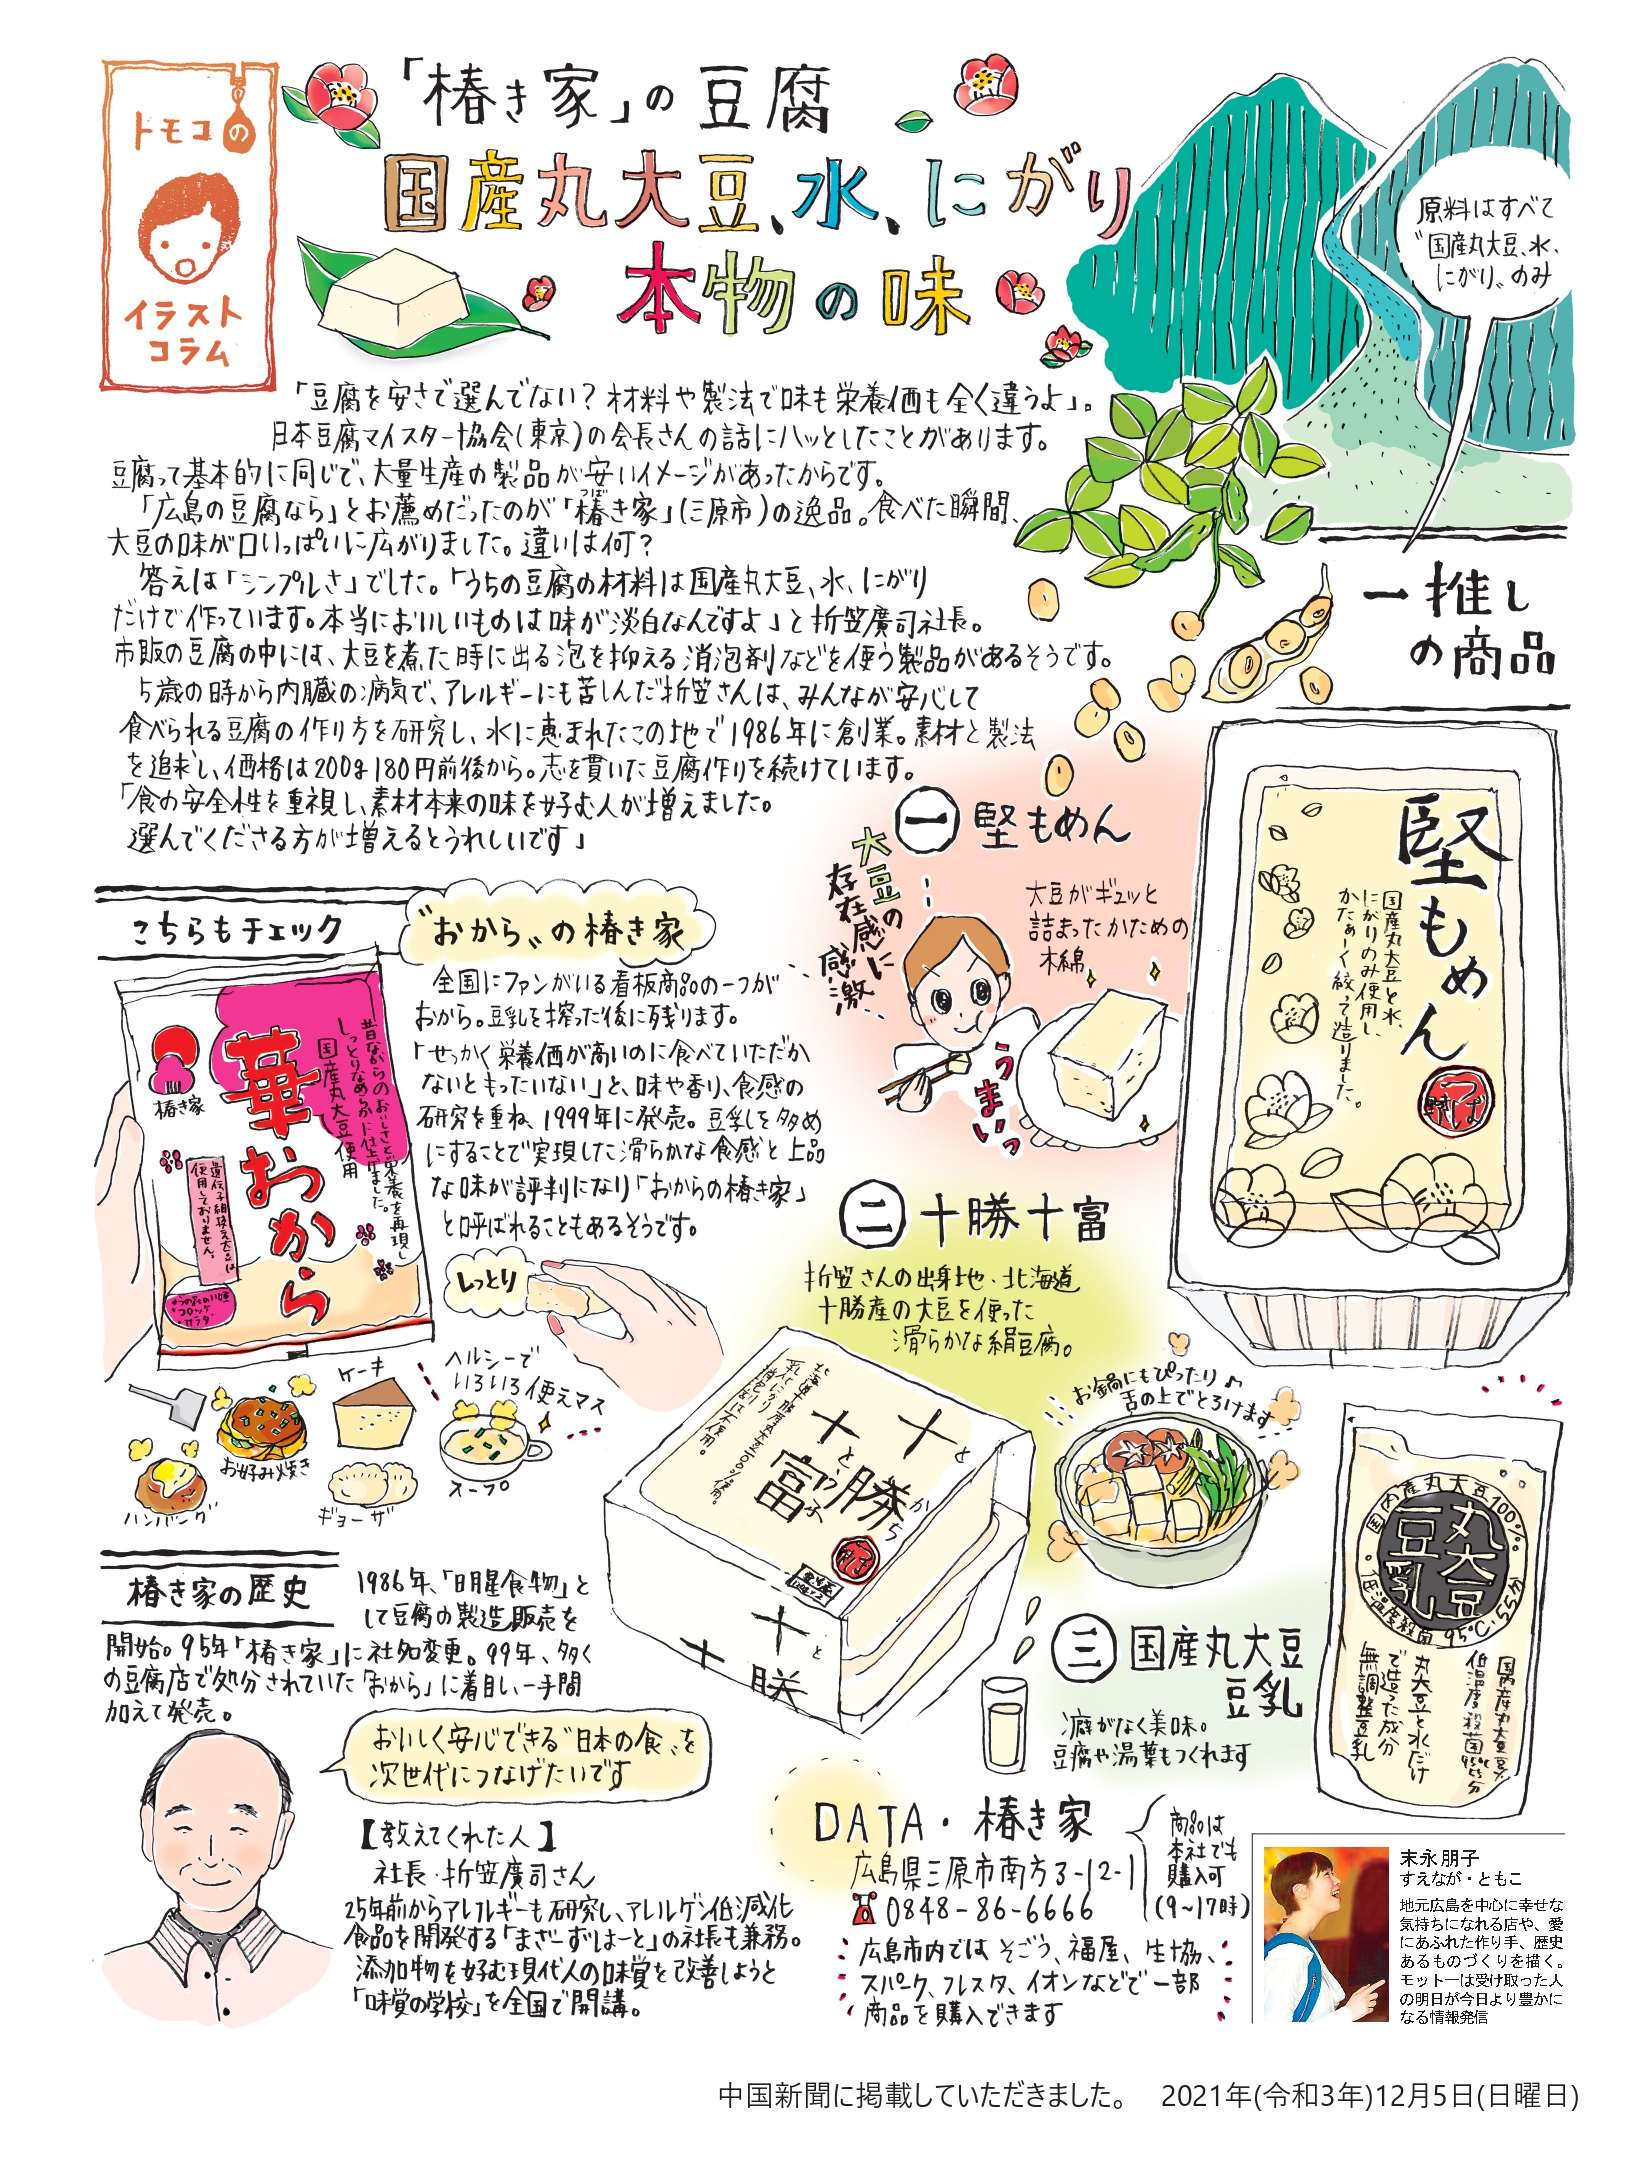 トモコの
イラスト
コラム
「椿き家」の豆腐
国産丸大豆、水、にがり
本物の味
原料はすべて
“国産丸大豆、水、
にがり〟のみ
「豆腐を安さで選んでない？材料や製法で味も栄養価も全く違うよ」。
日本豆腐マイスター協会(東京)の会長さんの話にハッとしたことがあります。
豆腐って基本的に同じで、大量生産の製品が安いイメージがあったからです。
「広島の豆腐なら」とお薦めだったのが「椿き家」(三原市)の逸品。食べた瞬間、
つば
大豆の味が口いっぱいに広がりました。違いは何？
答えは「シンプルさ」でした。「うちの豆腐の材料は国産丸大豆、水、にがり
だけで作っています。本当においしいものは味が淡白なんですよ」と折笠廣司社長。
市販の豆腐の中には、大豆を煮た時に出る泡を抑える消泡剤などを使う製品があるそうです。
5歳の時から内臓の病気で、アレルギーにも苦しんだ折笠さんは、みんなが安心して
食べられる豆腐の作り方を研究し、水に恵まれたこの地で1986年に創業。素材と製法
を追求し、価格は200g180円前後から。志を貫いた豆腐作りを続けています。
「食の安全性を重視し、素材本来の味を好む人が増えました。
選んでくださる方が増えるとうれしいです」
一推し
の商品
一 堅もめん
大豆の
存在感に
感激
大豆がギュッと
詰まったかための
木綿
うまいっ
堅もめん
国産丸大豆と水、
にがりのみ使用し、
かたぁーく絞って造りました。
こちらもチェック
“おから〟の椿き家
全国にファンがいる看板商品の一つが
おから。豆乳を搾った後に残ります。
「せっかく栄養価が高いのに食べていただか
ないともったいない」と、味や香り、食感の
研究を重ね、1999年に発売。豆乳を多め
にすることで実現した滑らかな食感と上品
な味が評判になり「おからの椿き家」
と呼ばれることもあるそうです。
椿き家
華おから
昔ながらのおいしさと栄養を再現し
しっとりなめらかに仕上げました。
国産丸大豆使用
遺伝子組換え大豆は
使用しておりません。
しっとり
ケーキ
ヘルシーで
いろいろ使えマス
お好み焼き
スープ
ハンバーグ
ギョーザ
二 十勝十富
折笠さんの出身地、北海道
十勝産の大豆を使った
滑らかな絹豆腐。
お鍋にもぴったり♪
舌の上でとろけます
十勝
とかち
十富
十勝
三 国産丸大豆
豆乳
癖がなく美味。
豆腐や湯葉もつくれます
国内産丸大豆100%
丸大豆
豆乳
低温度殺菌 95℃・55分
国産丸大豆
丸大豆と水だけ
で造った成分
無調整豆乳
椿き家の歴史
1986年、「明星食物」と
して豆腐の製造、販売を
開始。95年「椿き家」に社名変更。99年、多く
の豆腐店で処分されていた「おから」に着目し、一手間
加えて発売。
おいしく安心できる“日本の食〟を
次世代につなげたいです
【教えてくれた人】
社長・折笠廣司さん
25年前からアレルギーも研究し、アレルゲン低減化
食品を開発する「まざーずはーと」の社長も兼務。
添加物を好む現代人の味覚を改善しようと
「味覚の学校」を全国で開講。
DATA・椿き家
広島県三原市南方3-12-1
0848-86-6666
商品は
本社でも
購入可
(9〜17時)
広島市内では そごう、福屋、生協、
スパーク、フレスタ、イオンなどで一部
商品を購入できます
末永朋子
すえなが・ともこ
地元広島を中心に幸せな
気持ちになれる店や、愛
にあふれた作り手、歴史
あるものづくりを描く。
モットーは受け取った人
の明日が今日より豊かに
なる情報発信
中国新聞に掲載していただきました。 2021年(令和3年)12月5日(日曜日)